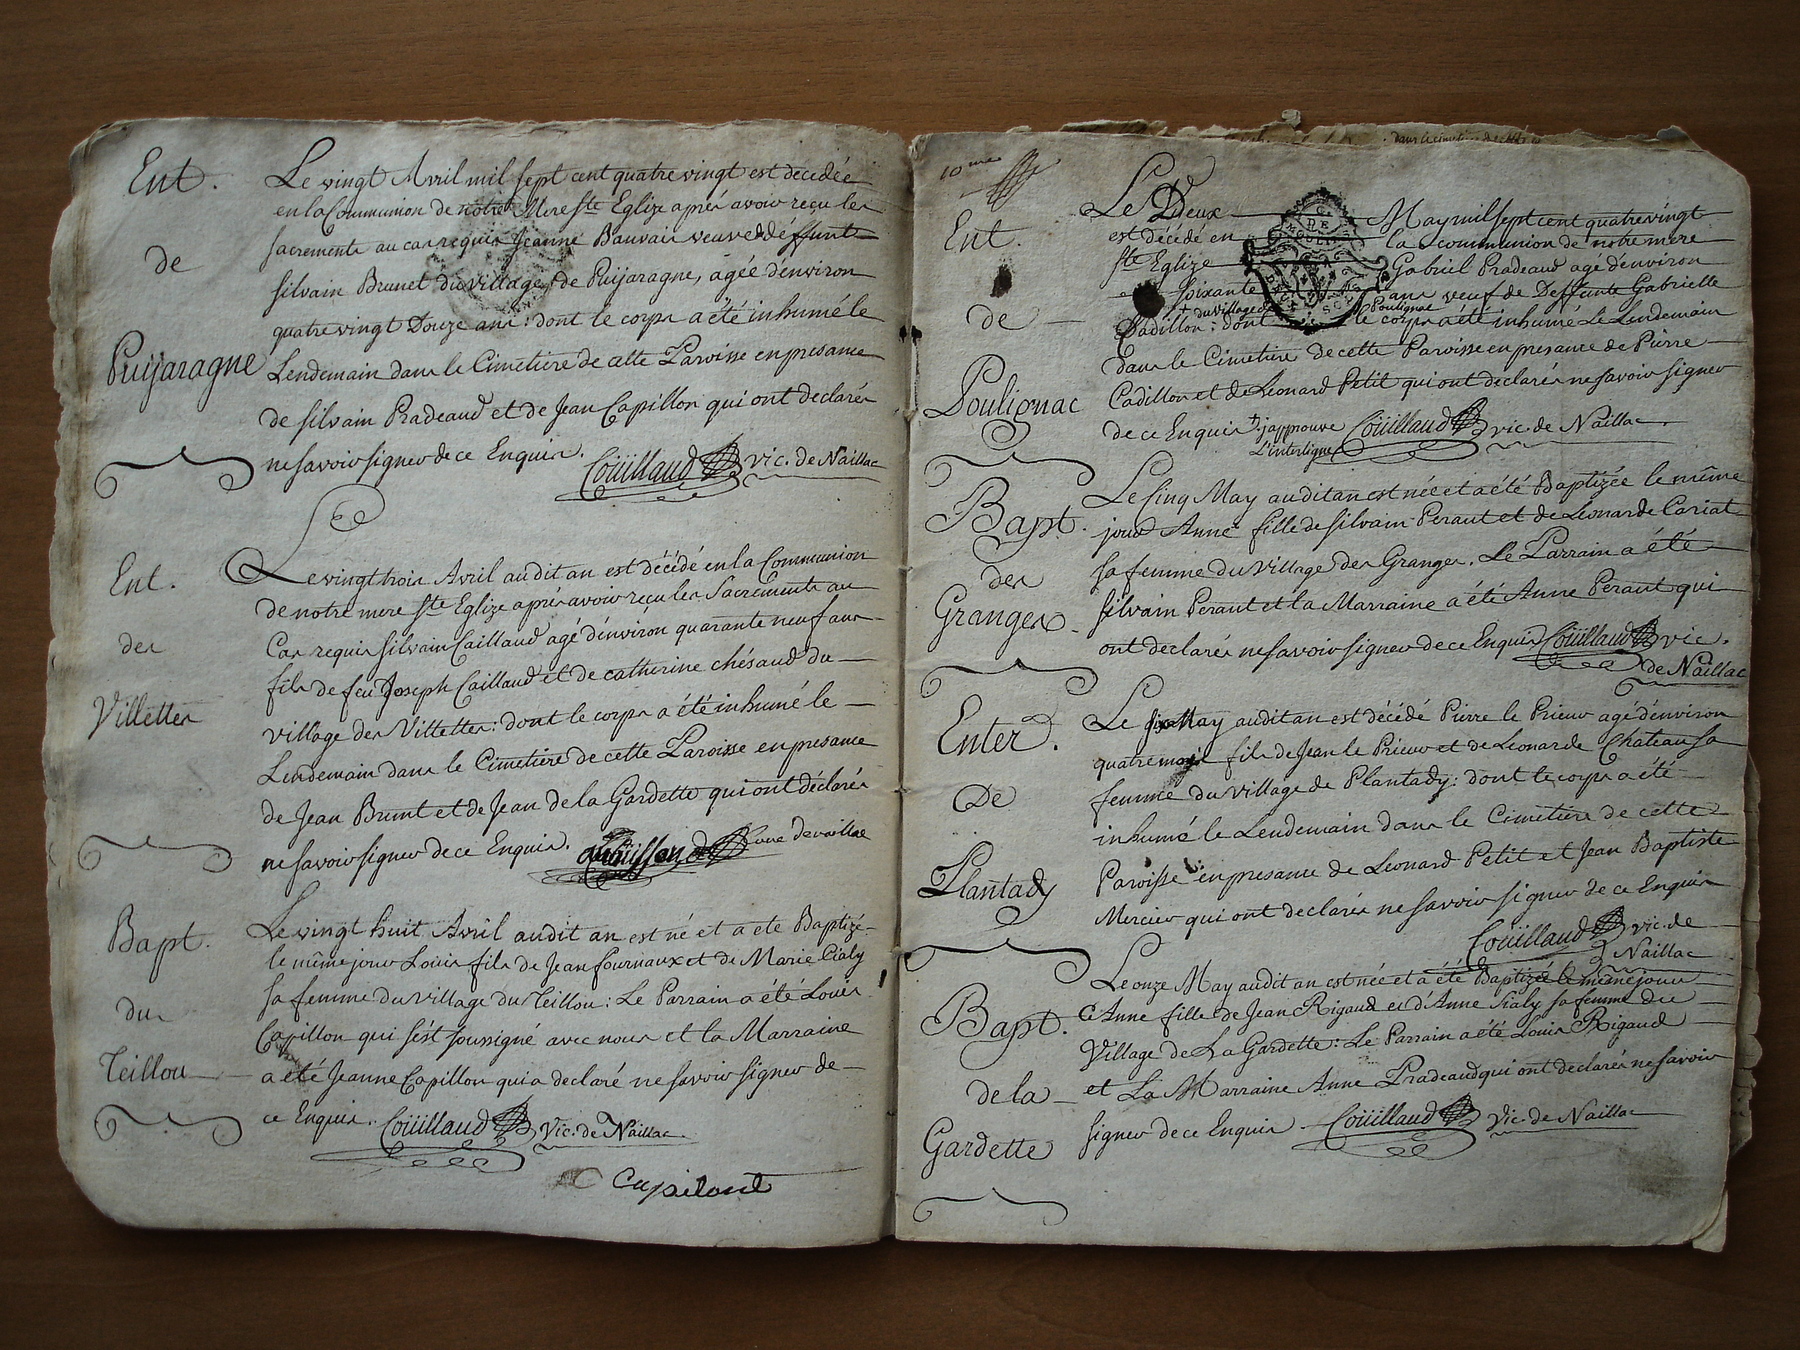 Ent.
de
Puijaragne
Le vingt Avril mil sept cent quatre vingt est decedée
en la Communion de notre Mere Ste Eglize aprés avoir reçu les
sacrements au cas requis Jeanne Bauvais veuve de déffunt
silvain Brunet du village de Puijaragne, agée d'environ
quatre vingt Douze ans : dont le corps a été inhumé le
Lendemain dans le Cimetiere de cette Paroisse en presance
de silvain Pradeaud et de Jean Capillon qui ont declarés
ne savoir signer de ce Enquis. Coüillaud vic. de Naillac
Ent.
des
Villettes
Le vingt trois Avril audit an est décédé en la Communion
de notre mere Ste Eglize aprés avoir reçu les Sacrements au
Cas requis silvain Caillaud agé d'environ quarante neuf ans
fils de feu Joseph Caillaud et de catherine chésaud du
village des Villettes : dont le corps a été inhumé le
Lendemain dans le Cimetiere de cette Paroisse en presance
de Jean Brunet et de Jean de la Gardette qui ont déclarés
ne savoir signer de ce Enquis.
Bapt.
du
Teillou
Le vingt huit Avril audit an est né et a été Baptizé
le même jour Louis fils de Jean fourniaux et de Marie Cialy
sa femme du village du Teillou : Le Parrain a été Louis
Capillon qui s'est soussigné avec nous et la Marraine
a été Jeanne Capillon qui a declaré ne savoir signer de
ce Enquis. Coüillaud Vic. de Naillac
Capilont
10me
Ent.
de
Poulignac
Le Deux May mil sept cent quatre vingt
est décédé en la communion de notre mere
Ste Eglize Gabriel Pradeaud agé d'environ
soixante ans veuf de Deffunte Gabrielle
+ du village de Poulignac
Cadillon : dont le corps a été inhumé Le Lendemain
Dans le Cimetiere de cette Paroisse en presance de Pierre
Cadillon et de Léonard Petit qui ont declarés ne savoir signer
de ce Enquis + j'approuve Coüillaud vic. de Naillac
L'interligne
Bapt.
des
Granges
Le Cinq May audit an est née et a été Baptizée le même
jour Anne fille de silvain Peraut et de Léonarde Cariat
sa femme du village des Granges. Le Parrain a été
silvain Peraut et la Marraine a été Anne Peraut qui
ont declarés ne savoir signer de ce Enquis Coüillaud vic.
de Naillac
Enter.
De
Plantady
Le six May audit an est décédé Pierre le Prieur agé d'environ
quatre mois fils de Jean le Prieur et de Leonarde Chateau sa
femme du village de Plantady : dont le corps a été
inhumé le Lendemain dans le Cimetiere de cette
Paroisse en presance de Leonard Petit et Jean Baptiste
Mercier qui ont declarés ne savoir signer de ce Enquis
Coüillaud vic. de
Naillac
Bapt.
de la
Gardette
Le onze May audit an est née et a été Baptizée le même jour
Anne fille de Jean Rigaud et d'Anne sialy sa femme du
Village de La Gardette : Le Parrain a été Louis Rigaud
et La Marraine Anne Pradeaud qui ont declarés ne savoir
signer de ce Enquis. Coüillaud Vic. de Naillac